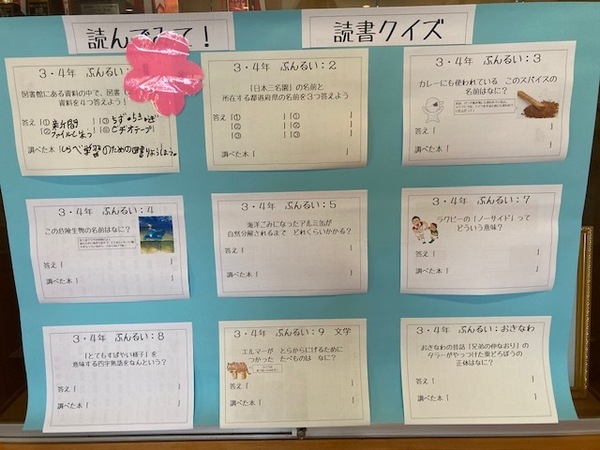 読んでみて！
読書クイズ
3・4年 ぶんるい：
図書館にある資料の中で、図書
資料を4つ答えよう！
答え［① 新分聞 ］［③
［② ］［④ ビデオテープ
調べた本［
3・4年 ぶんるい：2
「日本三名園」の名前と
所在する都道府県の名前を3つ答えよう
答え［① ］［① ］
［② ］［② ］
［③ ］［③ ］
調べた本［ ］
3・4年 ぶんるい：3
カレーにも使われている このスパイスの
名前はなに？
答え［ ］
調べた本［ ］
3・4年 ぶんるい：4
この危険生物の名前はなに？
答え［ ］
調べた本［ ］
3・4年 ぶんるい：5
海洋ごみになったアルミ缶が
自然分解されるまで どれくらいかかる？
答え［ ］
調べた本［ ］
3・4年 ぶんるい：7
ラグビーの「ノーサイド」って
どういう意味？
答え［ ］
調べた本［ ］
3・4年 ぶんるい：8
「とてもすばやい様子」を
意味する四字熟語をなんという？
答え［ ］
調べた本［ ］
3・4年 ぶんるい：9 文学
エルマーが とらからにげるために
つかった たべものは なに？
答え［ ］
調べた本［ ］
3・4年 ぶんるい：おきなわ
おきなわの昔話「兄弟の仲なおり」の
タラーがやっつけた粟どろぼうの
正体はなに？
答え［ ］
調べた本［ ］